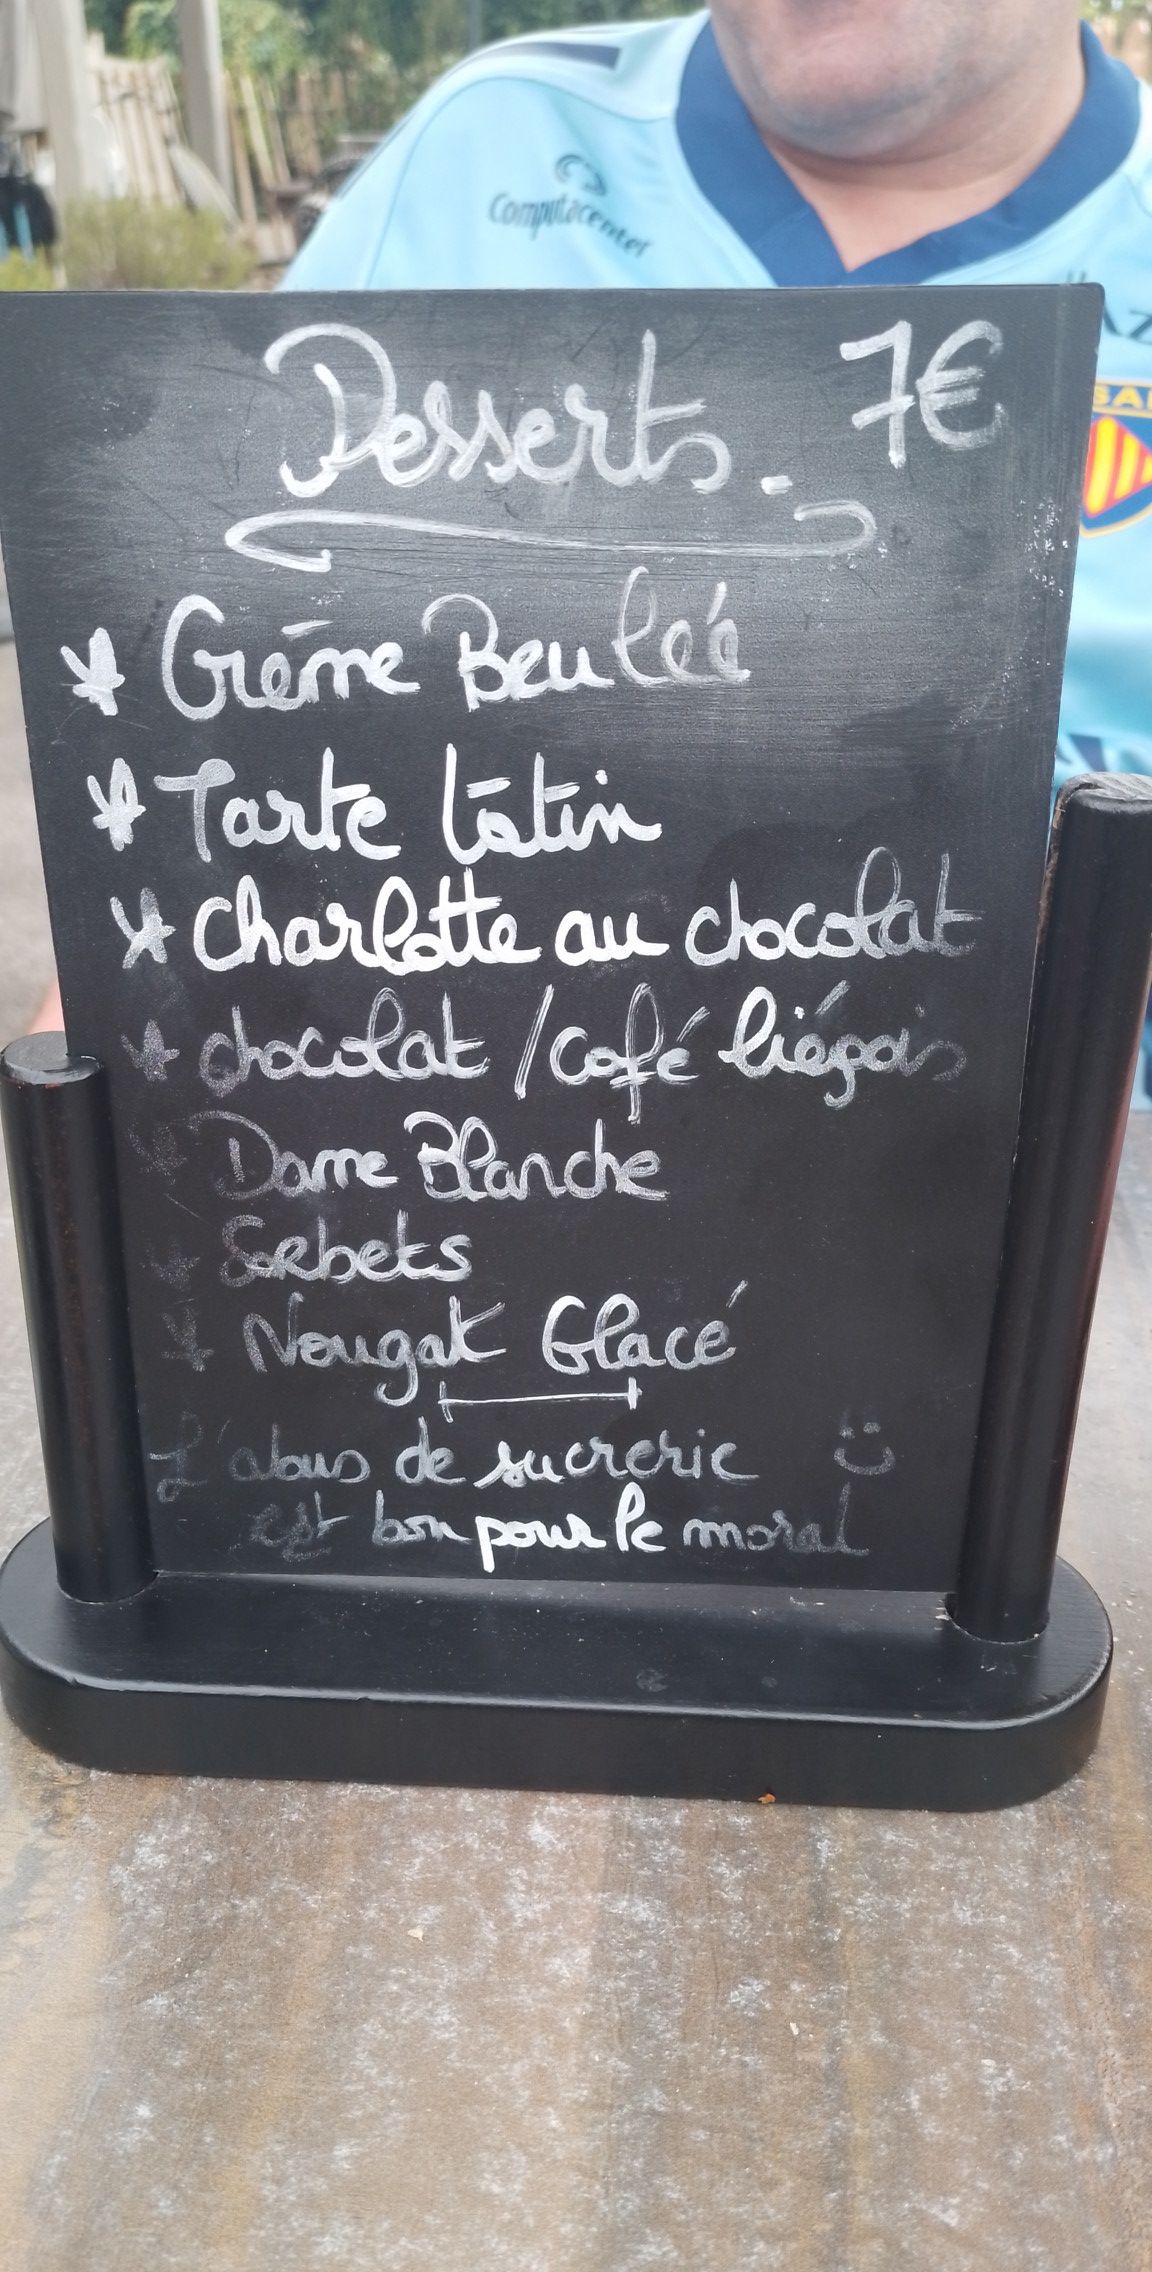 Computacenter
Desserts. 7€
* Crème Beulée
* Tarte tatin
* Charlotte au chocolat
* chocolat / café liégois
* Dame Blanche
* Sorbets
* Nougat Glacé
L'abus de sucrerie :)
est bon pour le moral